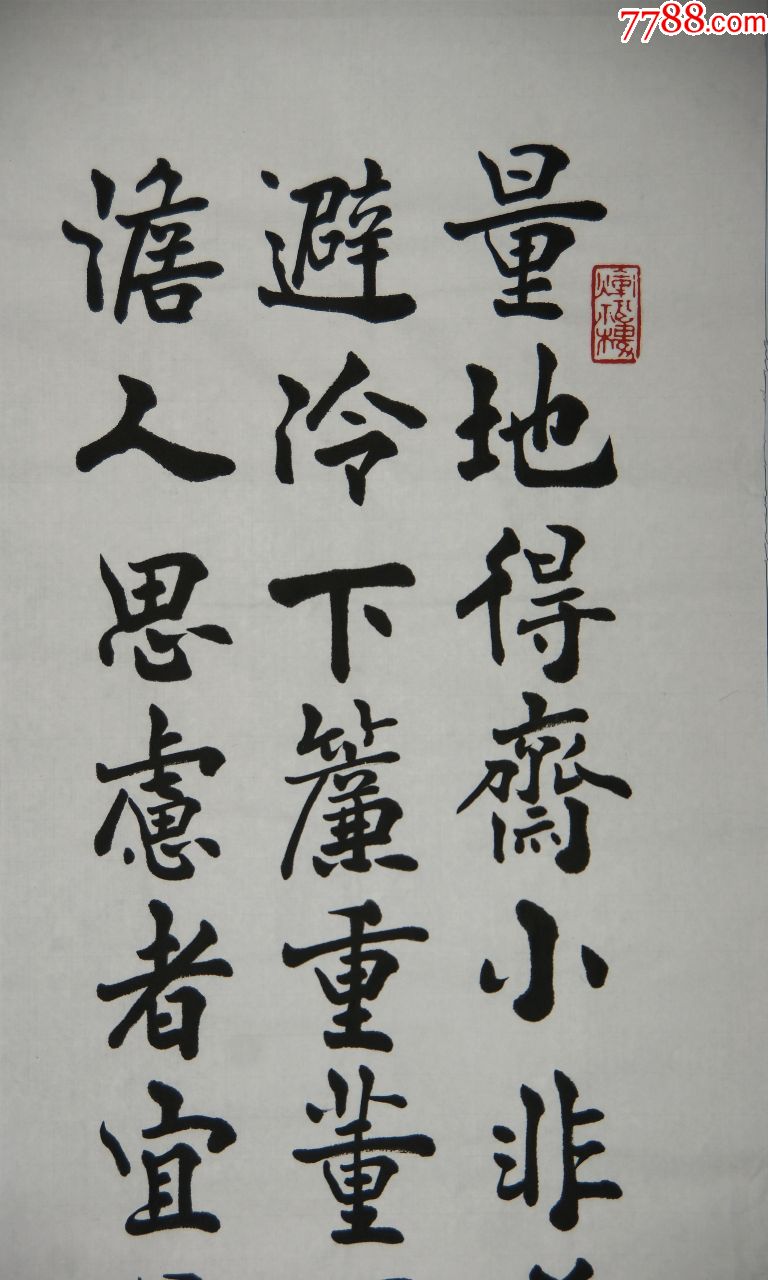 7788.com
量地得齋小非
避冷下簾重董
澹人思慮者宜